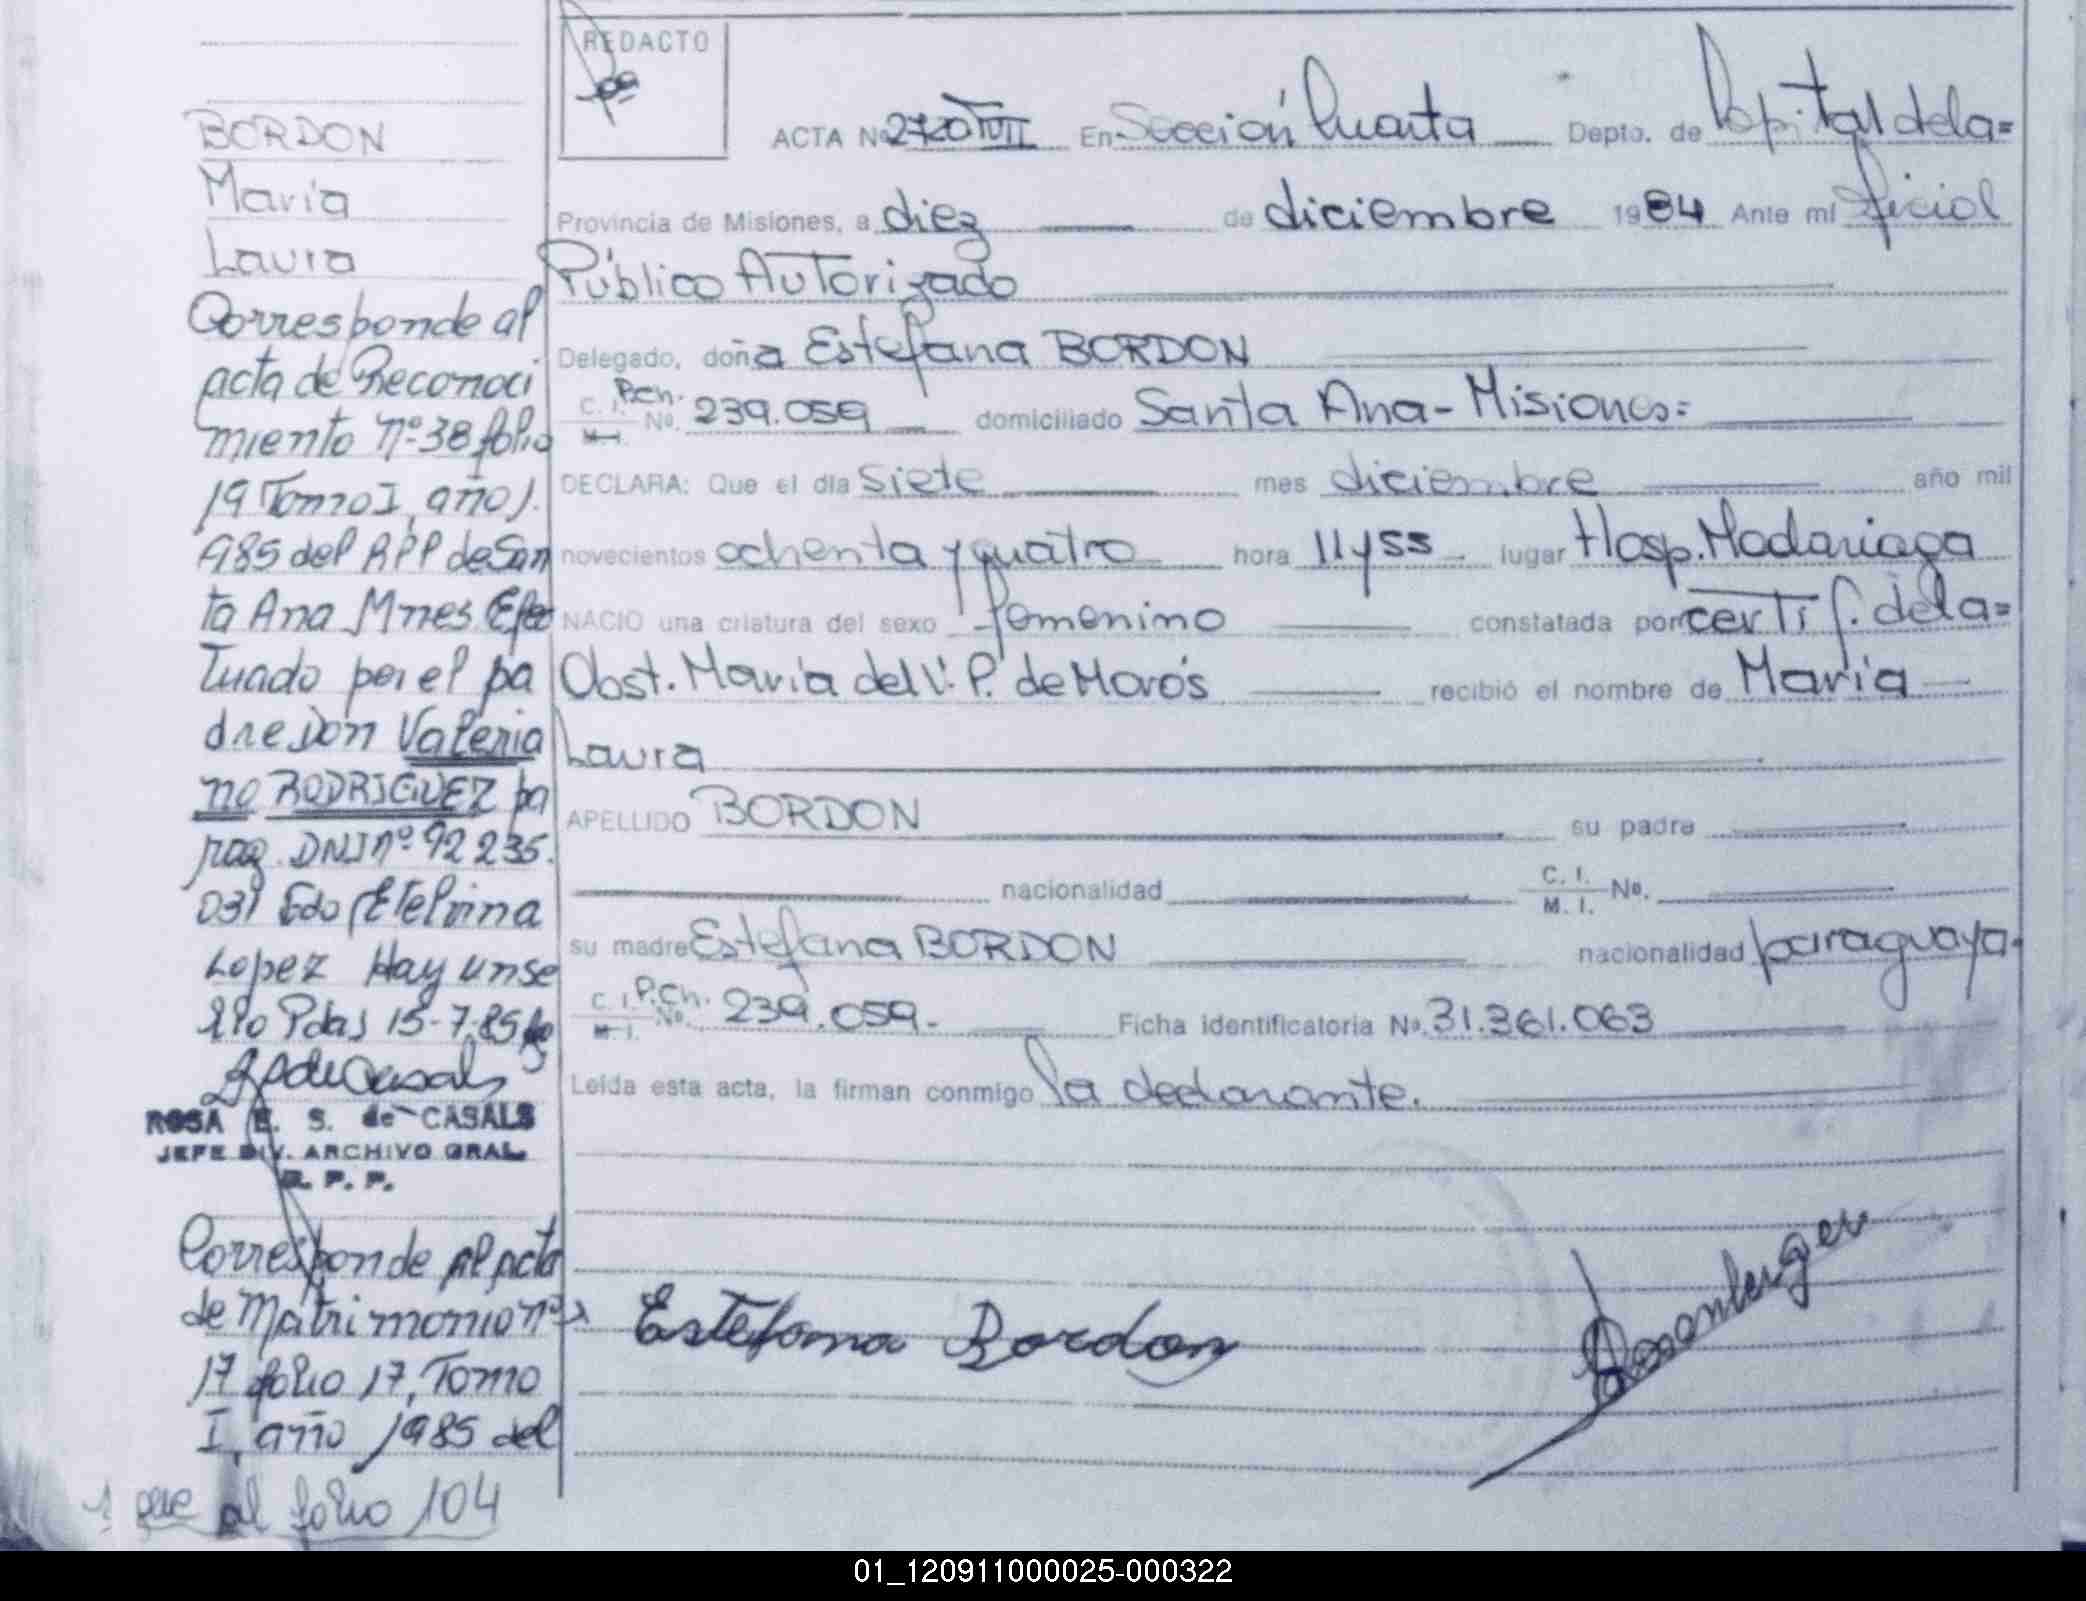 BORDON
María
Laura
Corresponde al
acta de Reconoci
miento nº 38 folio
19 Tomo I, año 1.
985 del RPP de San
ta Ana Mnes Efec
tuado por el pa
dre Don Valeria
no RODRIGUEZ pa
rag. DNI nº 92 235.
031 Fdo Etelvina
Lopez Hay un se
llo Pdas 15-7-85
ROSA E. S. de CASALS
JEFE DIV. ARCHIVO GRAL.
R. P. P.
Corresponde al acta
de Matrimonio nº
17 folio 17, Tomo
I, año 1985 del
al folio 104
REDACTO
ACTA Nº 2720 TVII En Sección Cuarta Depto. de Capital de la=
Provincia de Misiones, a diez de diciembre 1984 Ante mí Oficial
Público Autorizado
Delegado, doña Estefana BORDON
C. I. P.Ch. Nº. 239.059 domiciliado Santa Ana - Misiones=
M. I.
DECLARA: Que el día siete mes diciembre año mil
novecientos ochenta y quatro hora 11 y 55 lugar Hosp. Madariaga
NACIO una criatura del sexo femenino constatada por certif. de la=
Obst. María del V. P. de Morós recibió el nombre de María
Laura
APELLIDO BORDON su padre
nacionalidad C. I. M. I. Nº.
su madre Estefana BORDON nacionalidad paraguaya.
C. I. P.Ch. Nº. 239.059.- Ficha identificatoria Nº. 31.361.063
M. I.
Leída esta acta, la firman conmigo la declarante.
Estefana Bordon
01_120911000025-000322